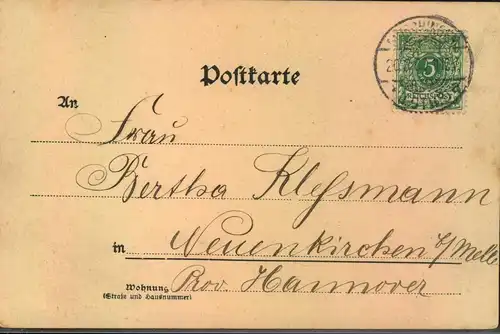 Postkarte
5
An
Frau
Bertha Klessmann
in Neuenkirchen b/Melle
Wohnung Prov. Hannover
(Straße und Hausnummer)